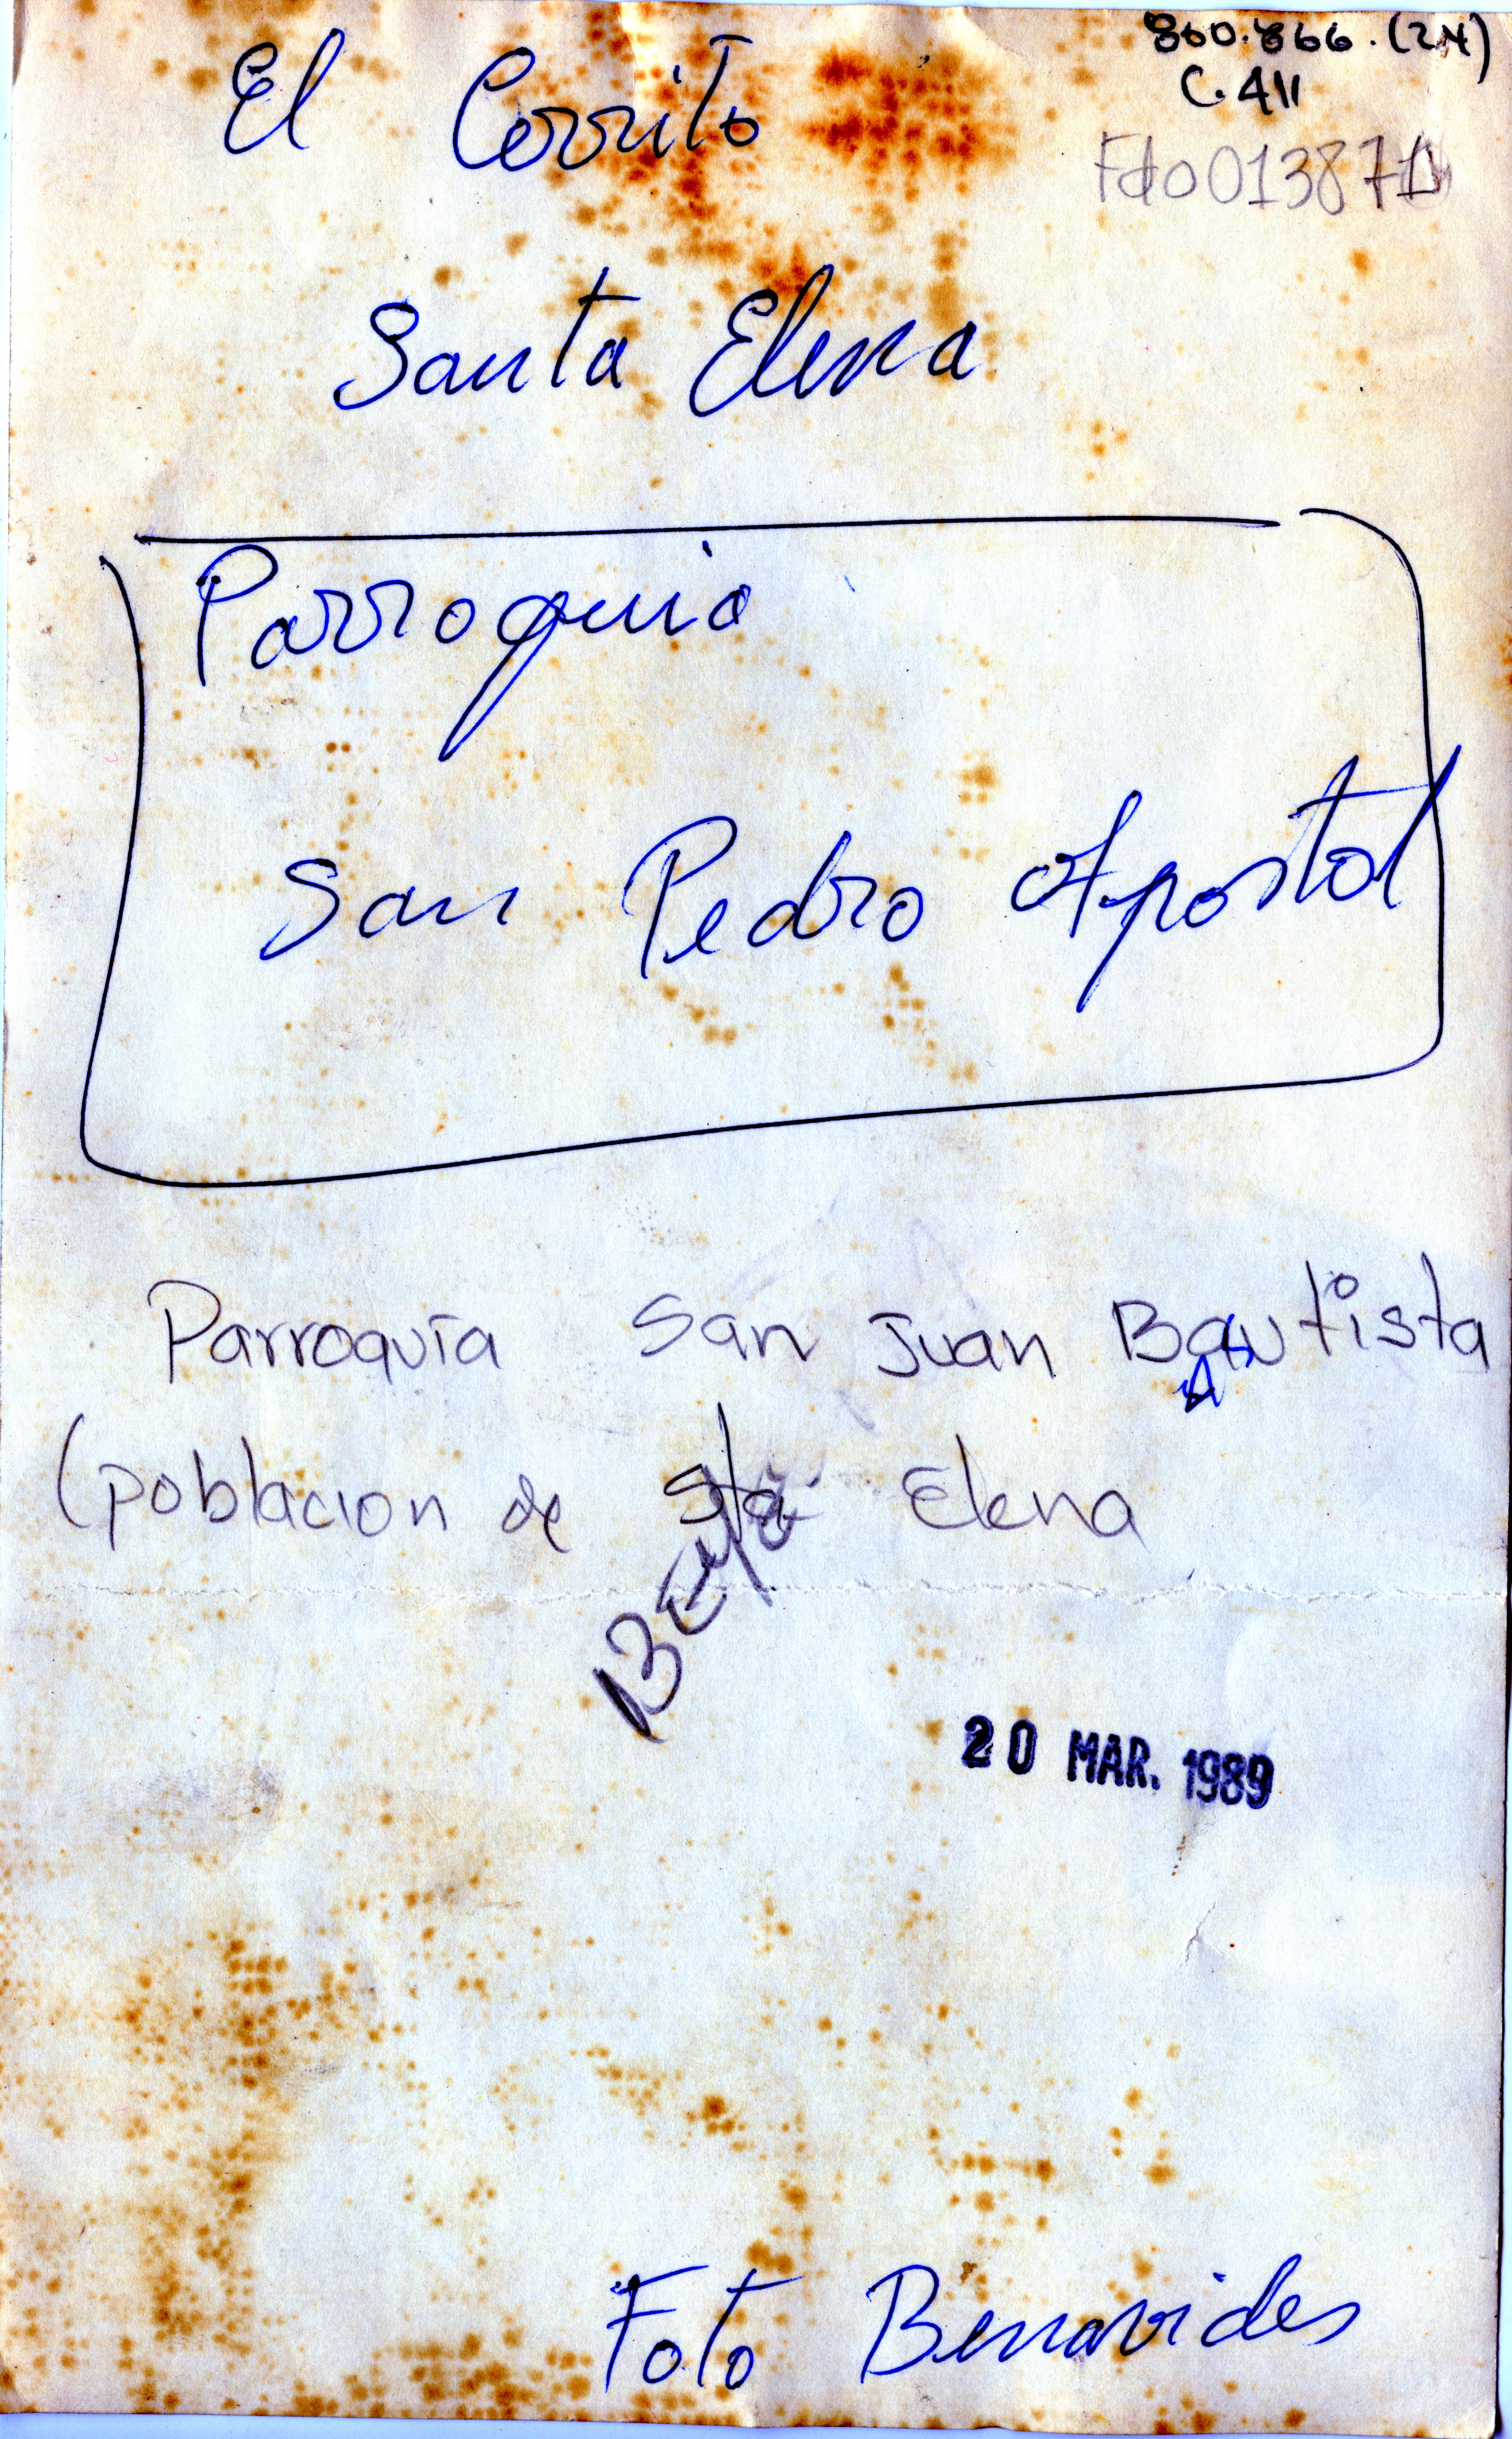 860.866.(2N)
C.411
Fdo013871
El Cerrito
Santa Elena
Parroquia
San Pedro Apostol
Parroquia San Juan Bautista
(poblacion de Sta Elena
20 MAR. 1989
Foto Benavides